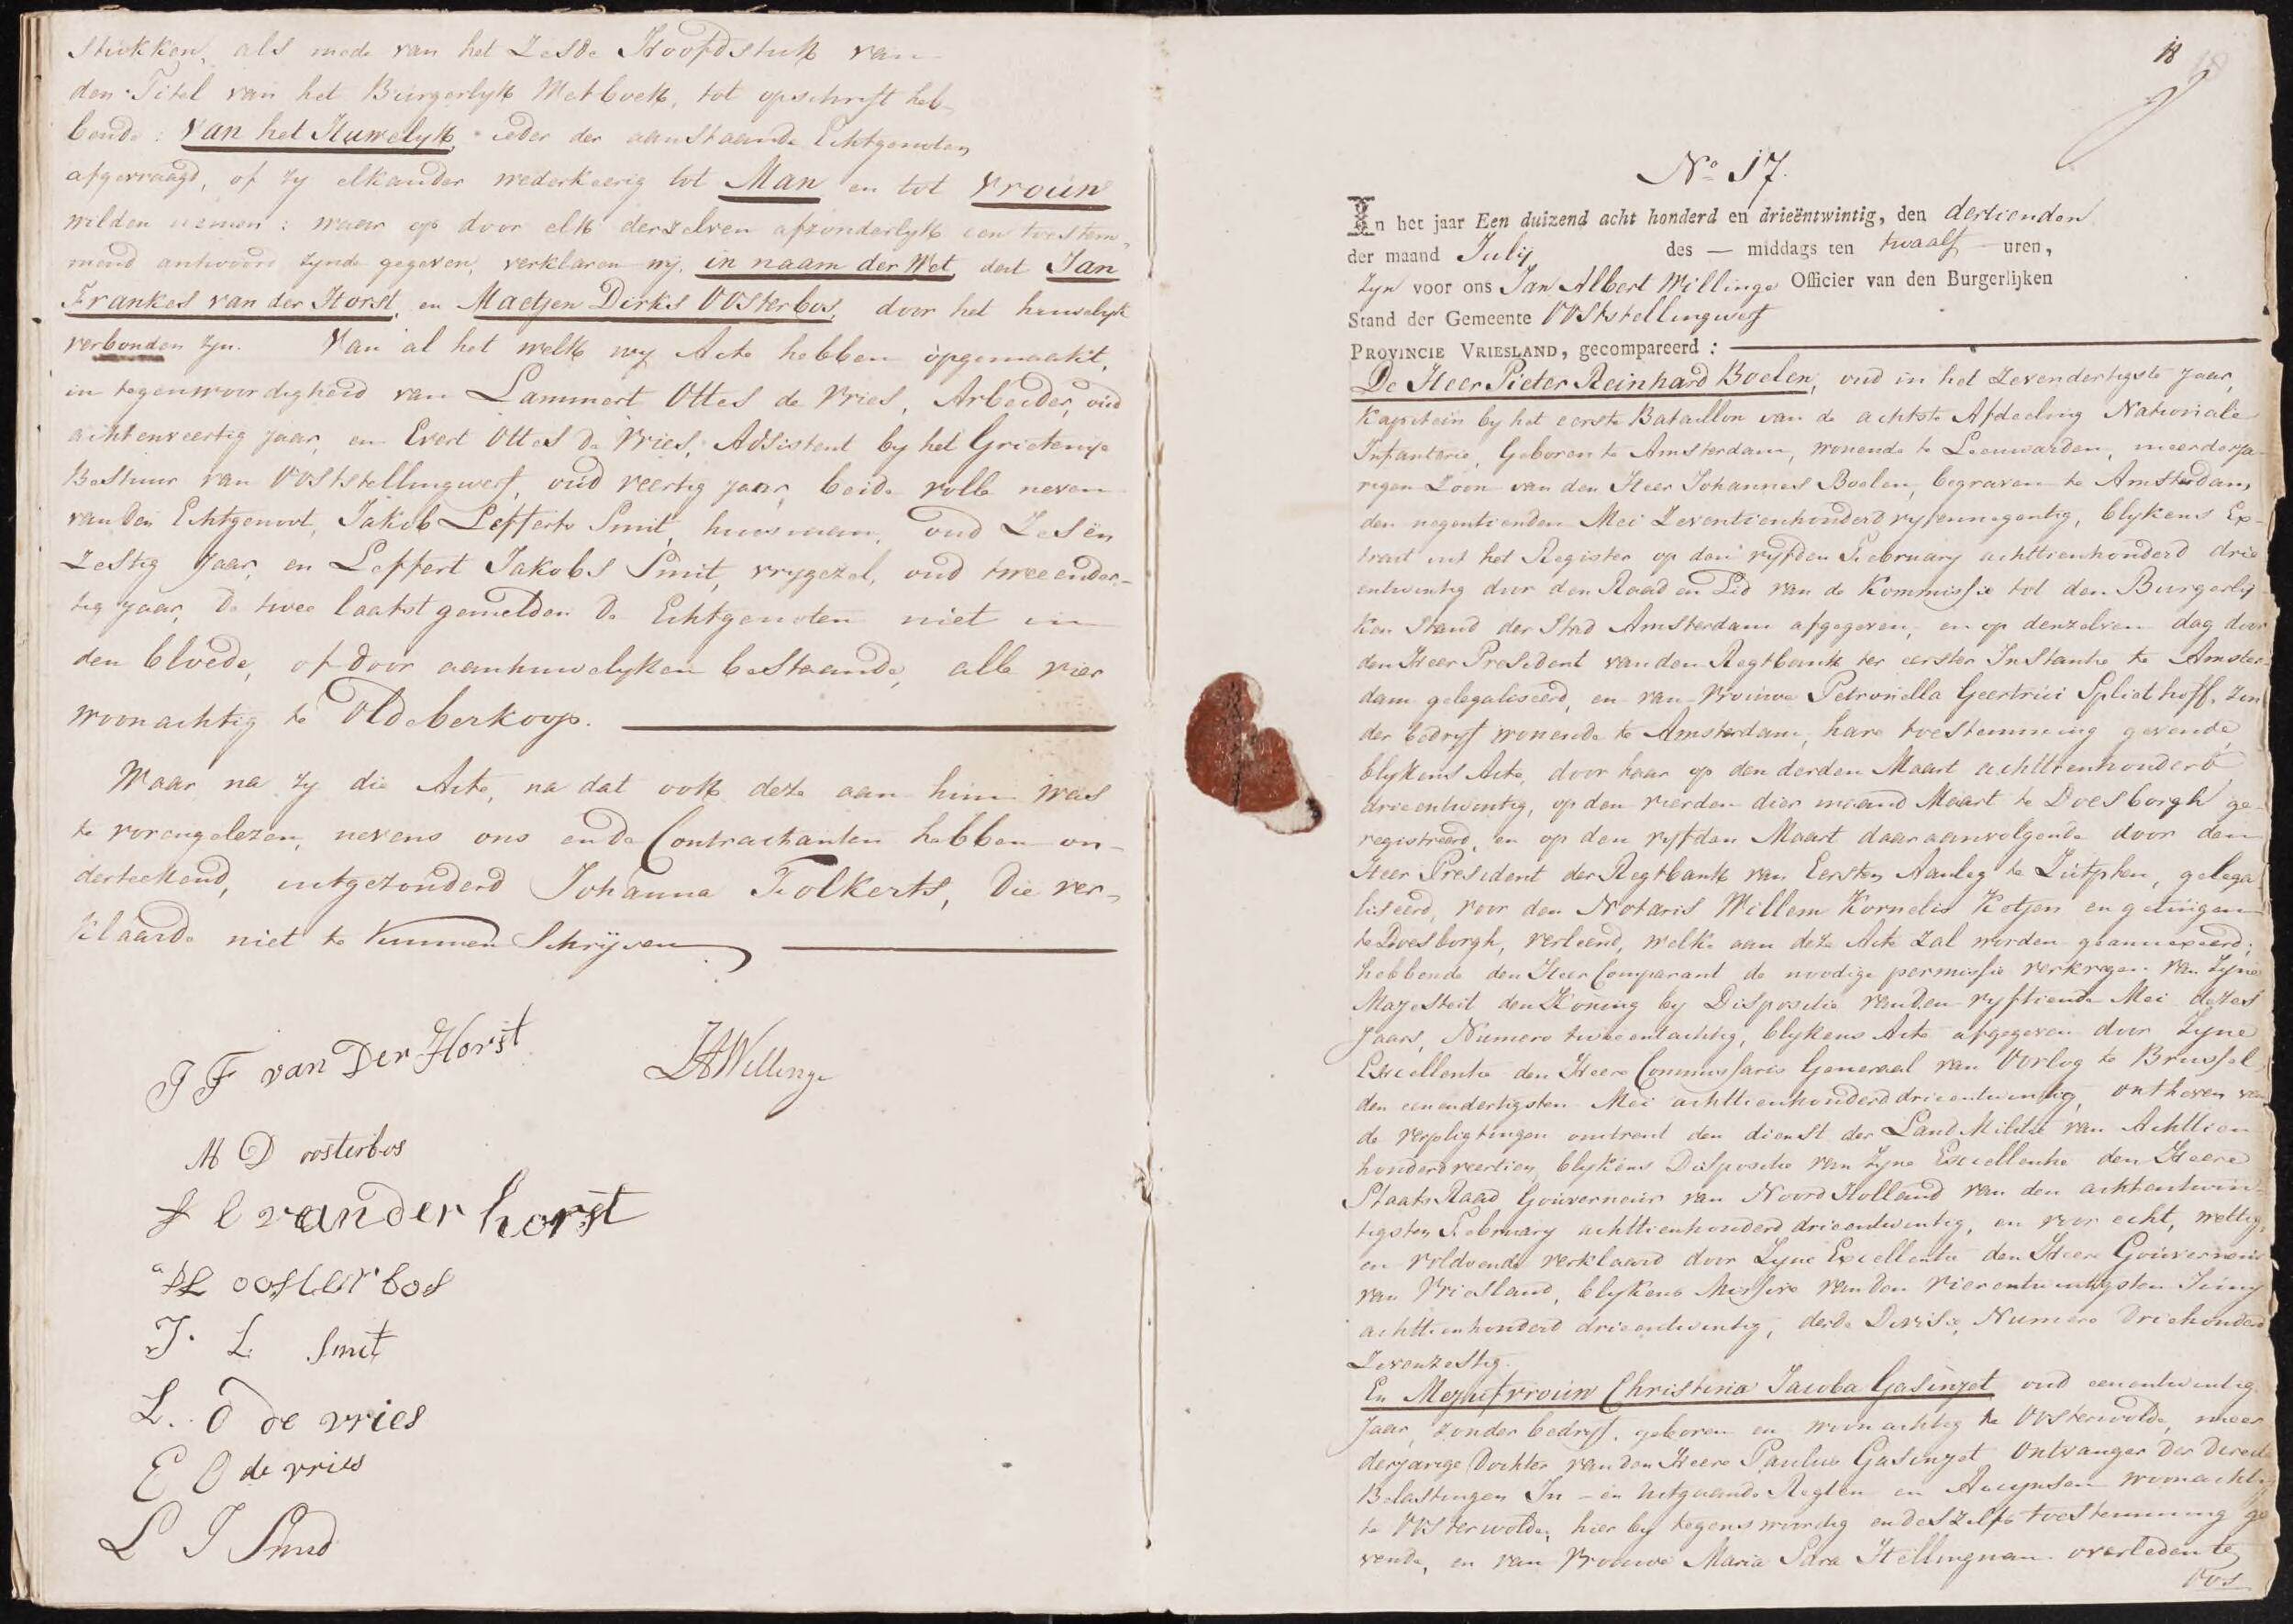 Stukken, als mede van het Zesde Hoofdstuk van
den Titel van het Burgerlyk Wetboek, tot opschrift heb-
bende: Van het Huwelyk, ieder der aanstaande Echtgenoten
afgevraagd, of zy elkander wederkeerig tot Man en tot Vrouw
wilden nemen: waar op door elk derzelven afzonderlyk een toestem-
mend antwoord zynde gegeven, verklaren wy, in naam der Wet, dat Jan
Frankes van der Horst, en Maetjen Dirks Oosterbos, door het huwelyk
verbonden zyn. Van al het welk wy Acte hebben opgemaakt,
in tegenwoordigheid van Lammert Ottes de Vries, Arbeider, oud
achtenveertig jaar, en Evert Ottes de Vries, Adsistent by het Grietenye
Bestuur van Ooststellingwerf, oud veertig jaar, beide volle neven
van den Echtgenoot, Jakob Lefferts Smit, huisman, oud Zesën
Zestig Jaar, en Leffert Jakobs Smit, vrygezel, oud tweeender-
tig jaar, De twee laatstgemelden De Echtgenoten niet in
den bloede, of door aanhuwelyken bestaande, alle vier
woonachtig te Oldeberkoop.
Waar na zy die Acte, na dat ook deze aan hun was
te voren gelezen, nevens ons en de Contractanten hebben on-
derteekend, uitgezonderd Johanna Folkerts, Die ver-
klaarde niet te kunnen Schrijven
J F van Der Horst
JAWillinge
M D oosterbos
F l vander horst
oosterbos
J. L Smit
L. O de vries
E O de vries
L J Smid
18
No 17.
In het jaar Een duizend acht honderd en drieëntwintig, den dertienden
der maand July des — middags ten twaalf uren,
Zyn voor ons Jan Albert Willinge Officier van den Burgerlijken
Stand der Gemeente Ooststellingwerf
PROVINCIE VRIESLAND, gecompareerd:
De Heer Pieter Reinhard Boelen, oud in het Zevendertigste Jaar,
Kapitein by het eerste Bataillon van de achtste Afdeeling Nationale
Infanterie, Geboren te Amsterdam, wonende te Leeuwarden, meerderja-
rigen Zoon van den Heer Johannes Boelen, begraven te Amsterdam,
den negentienden Mei Zeventienhonderd vyfennegentig, blykens Ex-
tract uit het Register op den vyfden February achttienhonderd drie
entwintig door den Raad en Lid van de Kommissie tot den Burgerly-
ken Stand der Stad Amsterdam afgegeven, en op denzelven dag door
den Heer President van den Regtbank ter eerster Instantie te Amster-
dam gelegaliseerd, en van Vrouwe Petronella Geertrui Spliethoff, zon
der bedryf wonende te Amsterdam, hare toestemming gevende,
blykens Acte, door haar op den derden Maart achttienhonderd
drieentwintig, op den vierden dier maand Maart te Doesborgh ge-
registreerd, en op den vyfden Maart daaraanvolgende door den
Heer President der Regtbank van Eersten Aanleg te Zutphen, gelega-
liseerd, voor den Notaris Willem Kornelis Kotjen en getuigen
te Doesborgh, verleend, welke aan deze Acte zal worden geannexeerd;
hebbende den Heer Comparant de noodige permissie verkregen van Zyne
Majesteit den Koning by Dispositie van den vyftiende Mei dezes
Jaars, Numero tweeentachtig, blykens Acte afgegeven door Zyne
Excellentie den Heere Commissaris Generaal van Oorlog te Brussel,
den eenendertigsten Mei achttienhonderd drieentwintig, ontheven van
de verpligtingen omtrent den dienst der Land Militie van Achttien
honderd veertien, blykens Dispositie van Zyne Excellentie den Heere
Staats Raad Gouverneur van Noord Holland van den achtentwin-
tigsten February achttienhonderd drieentwintig, en voor echt, wettig,
en voldoende verklaard door Zyne Excellentie den Heere Gouverneur
van Vriesland, blykens Missive van den vierentwintigsten Juny
achttienhonderd drieentwintig, derde Divisie, Numero Driehonderd
Zevenzestig.
En Mejuffrouw Christina Jacoba Gasinjet oud eenentwintig
Jaar, zonder bedryf, geboren en woonachtig te Oosterwolde, meer
derjarige Dochter van den Heere Paulus Gasinjet Ontvanger der Directe
Belastingen In- en uitgaande Regten en Accynsen woonachtig
te Oosterwolde, hier by tegenswoordig en deszelfs toestemming ge
vende, en van Vrouwe Maria Sara Hellingman overleden te
Oos